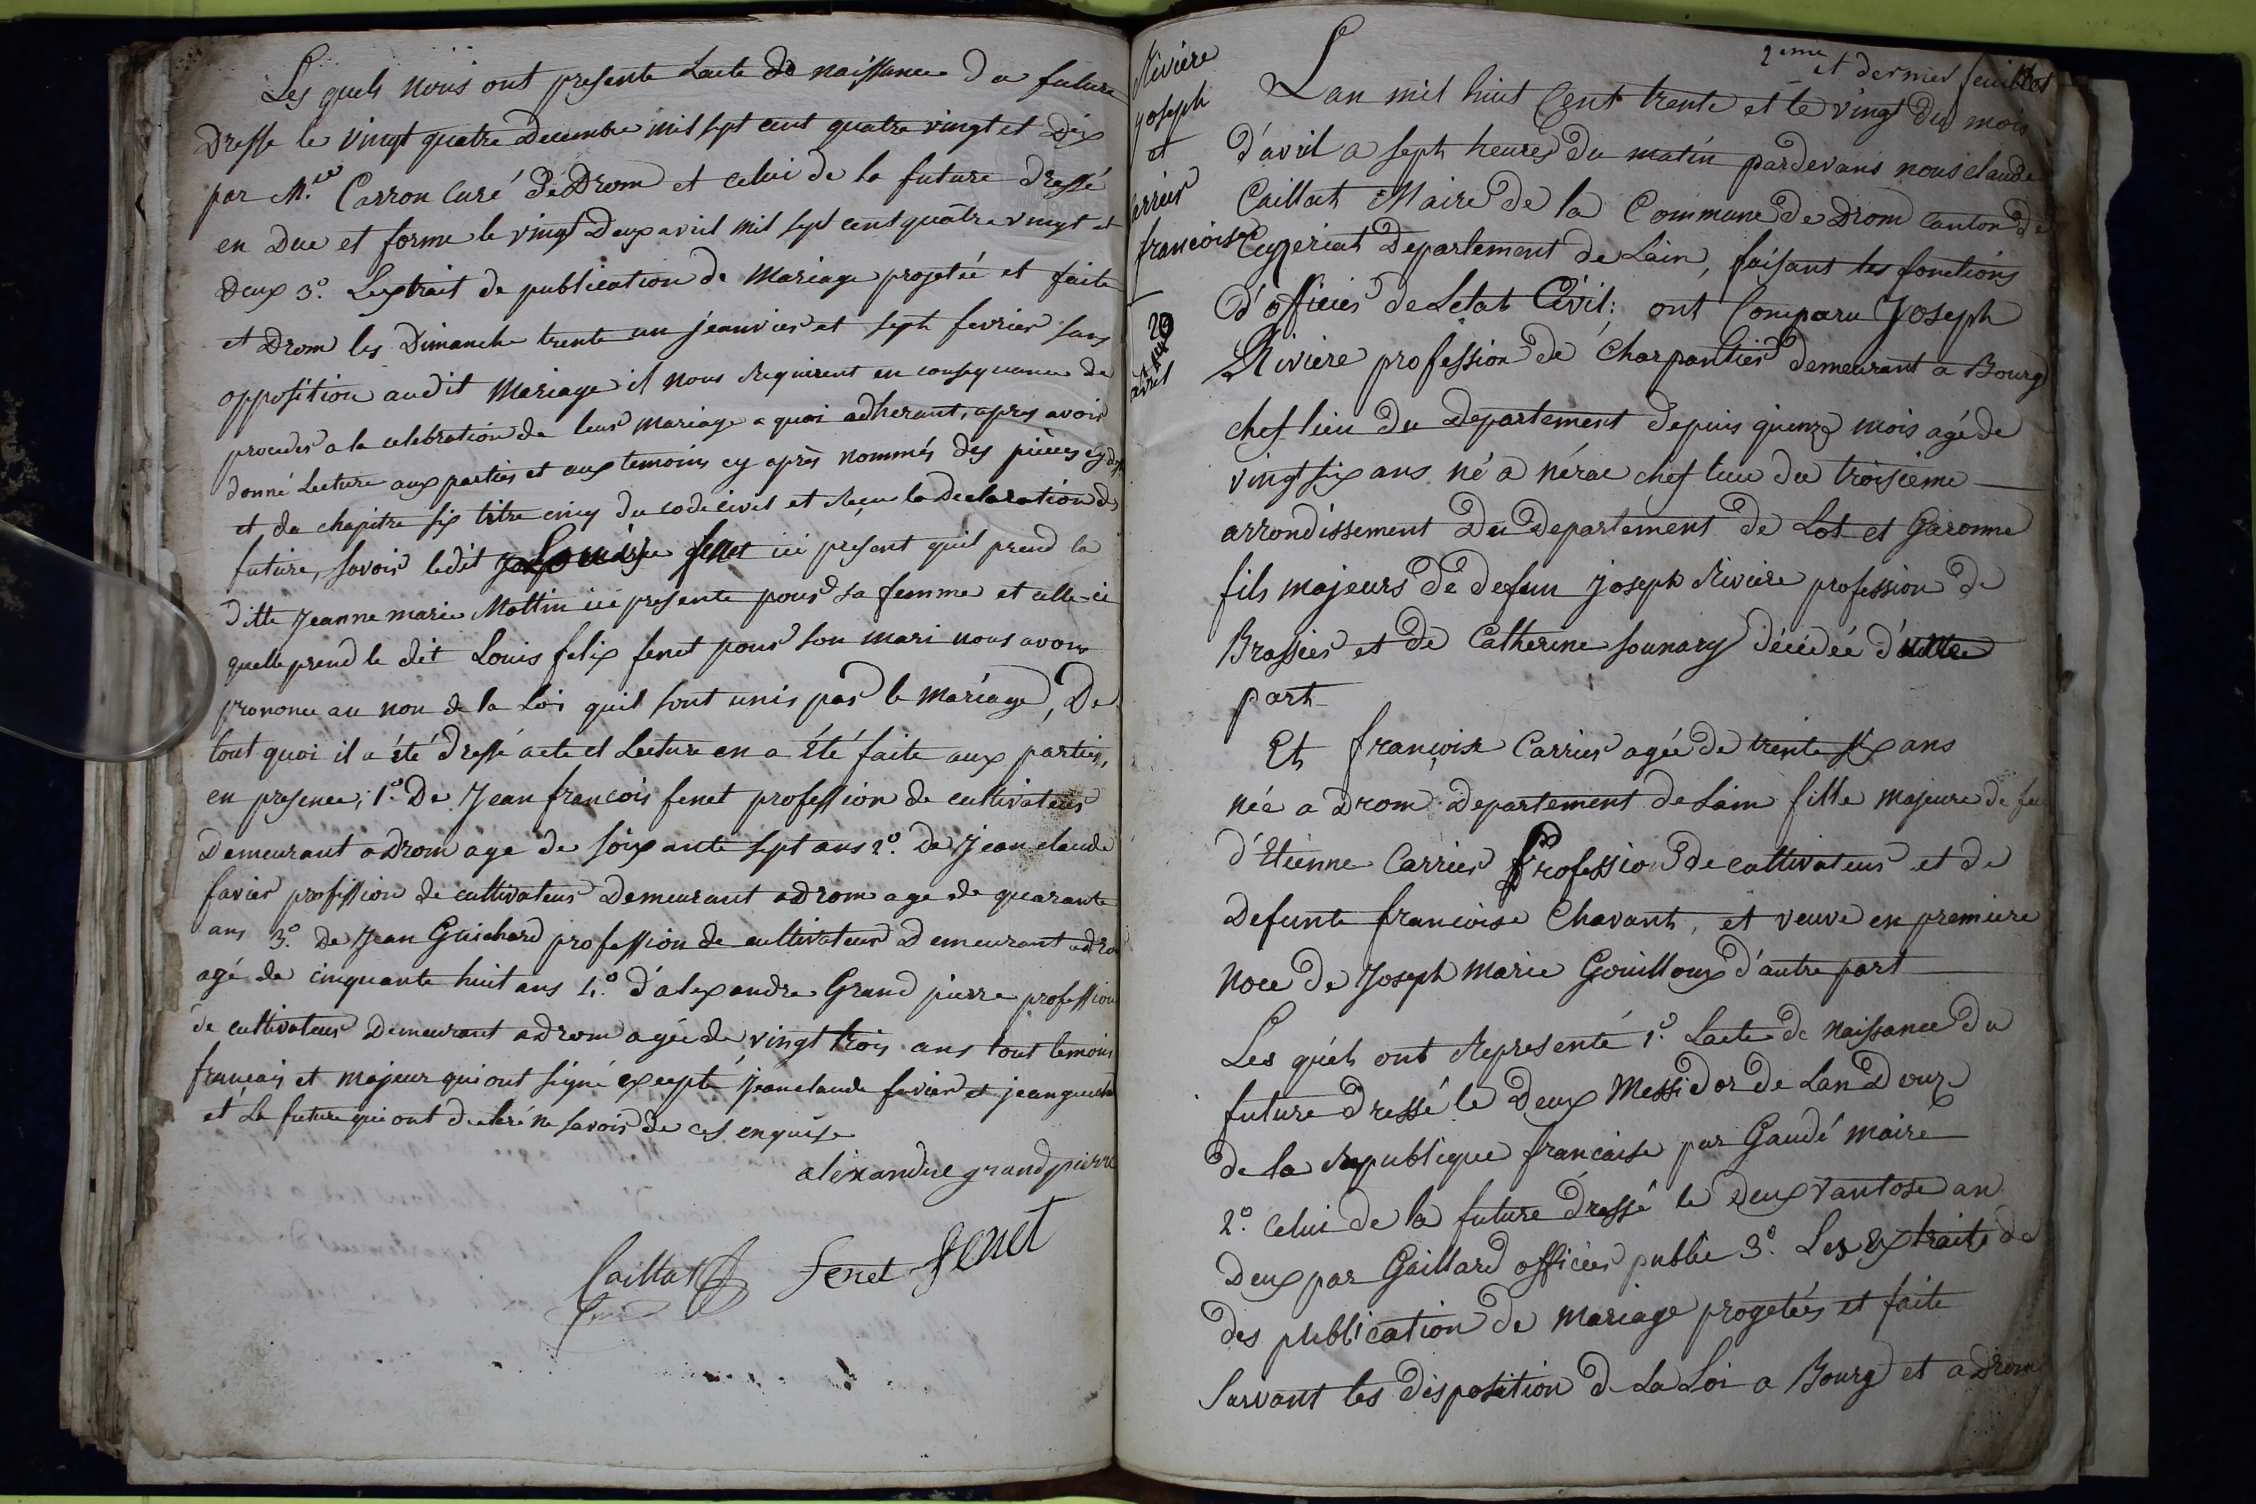 Les quels nous ont presente Lacte de naissance du future
Dresse le vingt quatre Decembre mil sept cent quatre vingt et Dix
par Mr. Carron Curé De Drom et celui de la future dressé
en Due et forme le vingt Deux avril mil sept cent quatre vingt et
Deux 3.o Lextrait de publication de Mariage projetée et faite
et Drom les Dimanche trente un jeanvier et sept fevrier sans
opposition audit Mariage il nous requierent en consequence de
proceder a la celebration de leur mariage a quoi adherant, apres avoir
donné Lecture aux parties et aux temoins cy après nommés des pièces cy
et du chapitre six titre cinq du code civil et reçu la Declaration de
future, savoir ledit Louis fenet ici present quil prend la
ditte Jeanne marie Mottin ici presente pour sa femme et celle-ci
quelle prend le dit Louis felix fenet pour son mari nous avons
prononce au non de la Loi quil sont unis par le mariage, De
tout quoi il a été dressé acte et Lecture en a été faite aux parties,
en presence, 1.o De Jean francois fenet profession de cultivateur
Demeurant a Drom age de soixante sept ans 2.o De Jean claude
favier profission de cultivateur Demeurant a Drom age de quarante
ans 3.o De Jean Guichard profession de cultivateur Demeurant a dro
agé de cinquante huit ans 4.o d'alexandre Grand pierre profession
de cultivateur Demeurant a drom agée de vingt trois ans tout temoins
français et majeur qui ont signé excepté jean claude favier et jean guich
et La future qui ont declaré ne savoir de ces enquise
alexandre grandpierre
Caillat fenet fenet
Rivière
yoseph
et
Carrier
francoise
20
avril
2eme et dernier feuillet
Lan mil huit Cent trente et le vingt du mois
d'avril a sept heures du matin pardevans nous claude
Caillat Maire de la Commune de Drom canton de
Ceyzeriat Departement de Lain, faisant les fonctions
d'officier de Letat Civil: ont Comparu Joseph
Riviere profession de Charpantier demeurant a Bourg
chef lieu du departement depuis quinze mois agé de
vingt six ans né a nérac chef lieu du troisieme
arrondissement Du Departement de Lot et Garonne
fils majeurs de defun joseph Riviere profession de
Brassier et de Catherine sounary décédée d'une
part
Et françoise Carrier agée de trente six ans
née a Drom Departement de Lain fille majeure de feu
d'Etienne Carrier Profession de cultivateur et de
Defunte francoise Chavant, et veuve en premiere
noce de Joseph marie Gouilloux d'autre part
Les quels ont Representé 1.o Lacte de naissance du
future dressé le Deux Messidor de Lan Douze
de la Republique francaise par Gaudé maire
2.o celui de la future dressé le deux vantose an
Deux par Gaillard officier public 3.o Les Extraits de
des publication de mariage progetées et faite
survant les disposition de La Loi a Bourg et a Drom